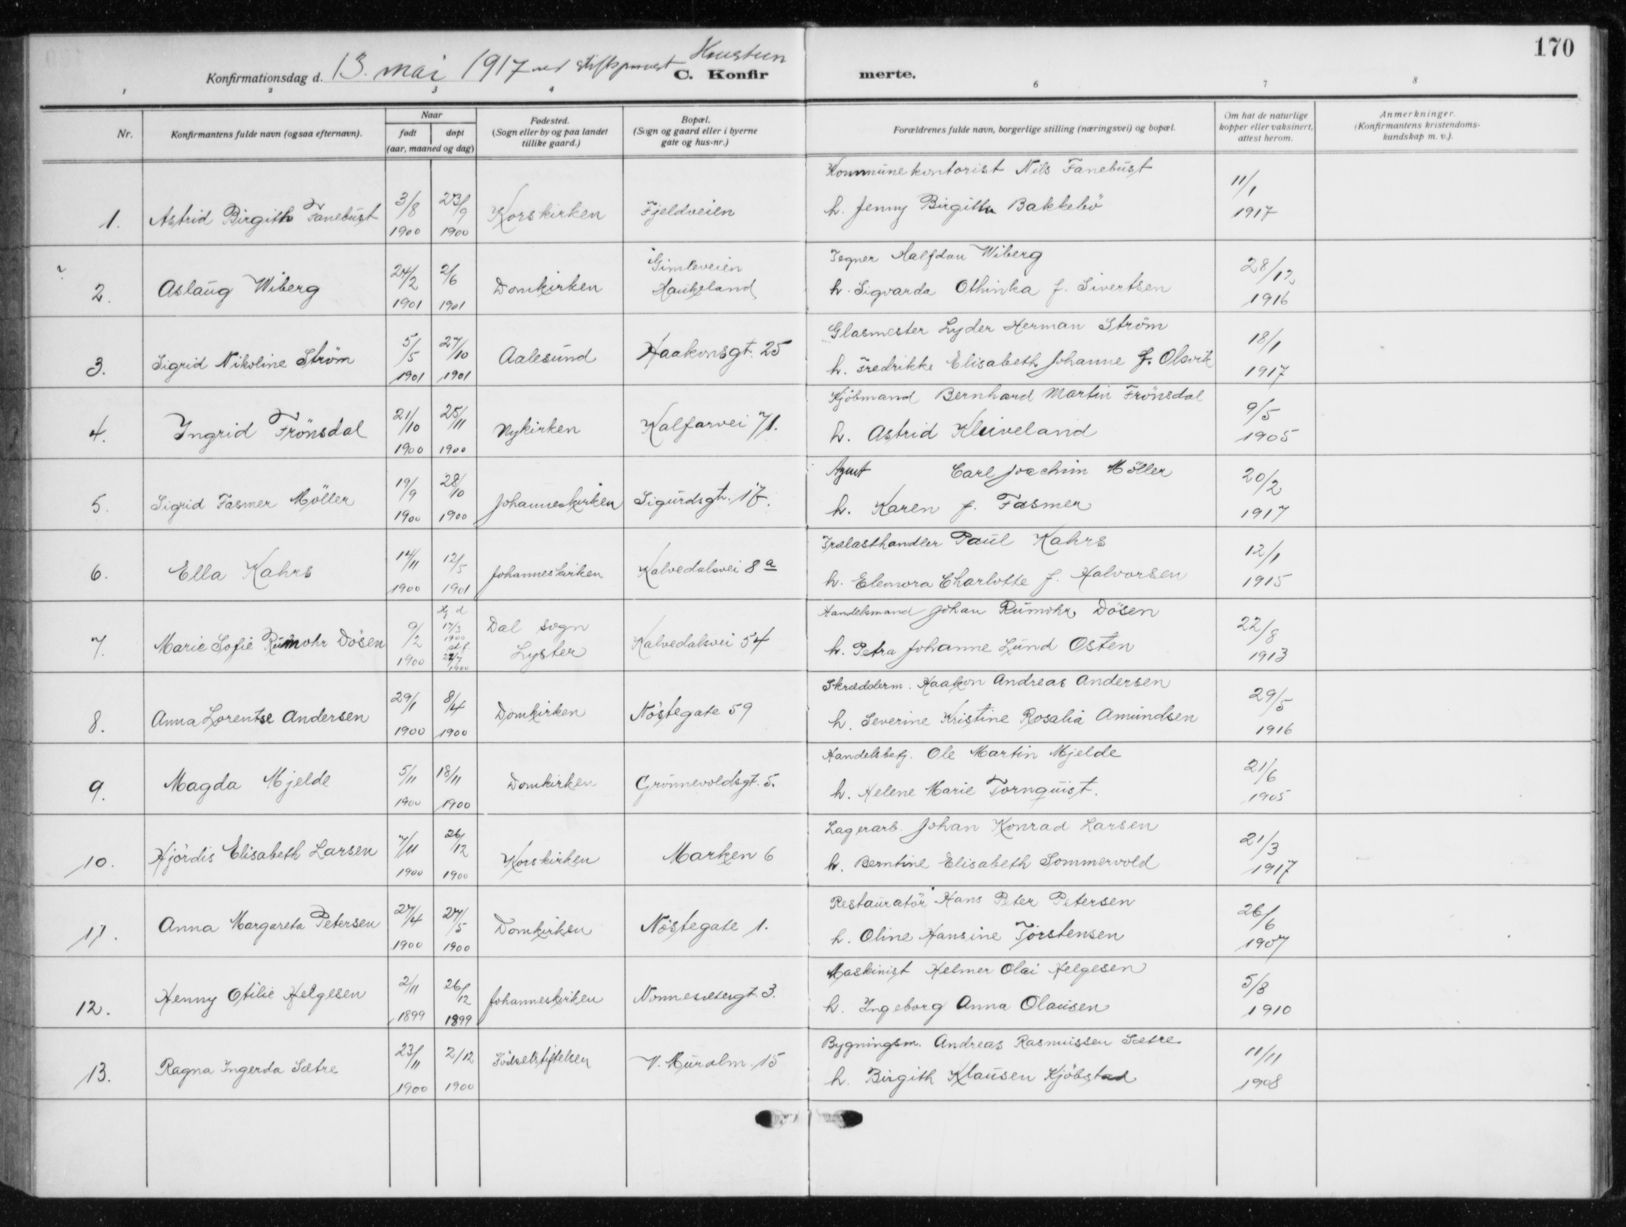 170
Konfirmationsdag d. 13. mai 1917 ved stiftsprovst
C. Konfirmerte.
1 2 3 4 6 7 8
Nr.
Konfirmantens fulde navn (ogsaa efternavn).
Naar
født
døpt
(aar, maaned og dag)
Fødested.
(Sogn eller by og paa landet
tillike gaard.)
Bopæl.
(Sogn og gaard eller i byerne
gate og hus-nr.)
Forældrenes fulde navn, borgerlige stilling (næringsvei) og bopæl.
Om hat de naturlige
kopper eller vaksinert,
attest herom.
Anmerkninger.
(Konfirmantens kristendoms-
kundskap m. v.).
Kommunekontorist Nils Fanebust
1. Astrid Birgith Fanebust 3/8 1900 23/9 1900 Korskirken Fjeldveien
h. Jenny Birgitta Bakkebö 11/1 1917
Tegner Halfdan Wiberg
2. Aslaug Wiberg 24/2 1901 2/6 1901 Domkirken Gimleveien
Haukeland
h. Sigvarda Othinka f. Sivertsen 28/12 1916
Glasmester Lyder Herman Ström
3. Sigrid Nikoline Ström 5/5 1901 27/10 1901 Aalesund Haakonsgt. 25
h. Fredrikke Elisabeth Johanne f. Olsvik 18/1 1917
Kjöbmand Bernhard Martin Frönsdal
4. Ingrid Frönsdal 21/10 1900 25/11 1900 Nykirken Kalfarvei 71.
h. Astrid Kleiveland 9/5 1905
Agent Carl Joachim Möller
5. Sigrid Fasmer Möller 19/9 1900 28/10 1900 Johanneskirken Sigurdsgt. 17.
h. Karen f. Fasmer 20/2 1917
Trælasthandler Paul Kahrs
6. Ella Kahrs 14/11 1900 12/5 1901 Johanneskirken Kalvedalsvei 8 a
h. Elenora Charlotte f. Halvorsen 12/1 1915
Handelsmand Johan Rumohr Dösen
7. Marie Sofie Rumohr Dösen 9/2 1900 Hj d 17/3 1900 Dal sogn
Lyster
Kalvedalsvei 54
h. Petra Johanne Lund Osten 22/8 1913
Skrædderm. Haakon Andreas Andersen
8. Anna Lorentse Andersen 29/1 1900 8/4 1900 Domkirken Nöstegate 59
h. Severine Kristine Rosalia Amundsen 29/5 1916
Handelsbetj. Ole Martin Mjelde
9. Magda Mjelde 5/11 1900 18/11 1900 Domkirken Grönnevoldsgt. 5.
h. Helene Marie Tornquist. 21/6 1905
Lagerarb. Johan Konrad Larsen
10. Hjördis Elisabeth Larsen 7/11 1900 26/12 1900 Korskirken Marken 6
h. Berntine Elisabeth Sommervold 21/3 1917
Restauratör Hans Peter Petersen
11. Anna Margareta Petersen 27/4 1900 27/5 1900 Domkirken Nöstegate 1.
h. Oline Hansine Torstensen 26/6 1907
Maskinist Helmer Olai Helgesen
12. Henny Otilie Helgesen 2/11 1899 26/12 1899 Johanneskirken Nonnesetergt 3.
h. Ingeborg Anna Olausen 5/8 1910
Bygningsm. Andreas Rasmussen Sætre
13. Ragna Ingerda Sætre 23/11 1900 2/12 1900 Födselsstiftelsen V. Muralm. 15
h. Birgith Klausen Kjöbstad 11/11 1908